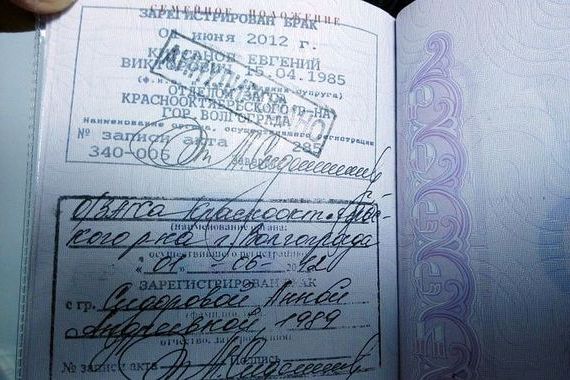 СЕМЕЙНОЕ ПОЛОЖЕНИЕ
ЗАРЕГИСТРИРОВАН БРАК
01 июня 2012 г.
ЕВГЕНИЙ
ВИКТОРОВИЧ 15.04.1985
ОТДЕЛОМ ЗАГСА
КРАСНООКТЯБРЬСКОГО Р-НА
ГОР. ВОЛГОГРАДА
Наименование органа, осуществившего регистрацию
№ записи акта 285
340-006
О/ЗАГСа Краснооктябрьс-
кого р-на г. Волгограда
(наименование органа,
осуществившего регистрацию)
«01» - 06 - 2012
ЗАРЕГИСТРИРОВАН БРАК
с гр. Сидоровой Анной
Андреевной, 1989
№ записи акта Подпись